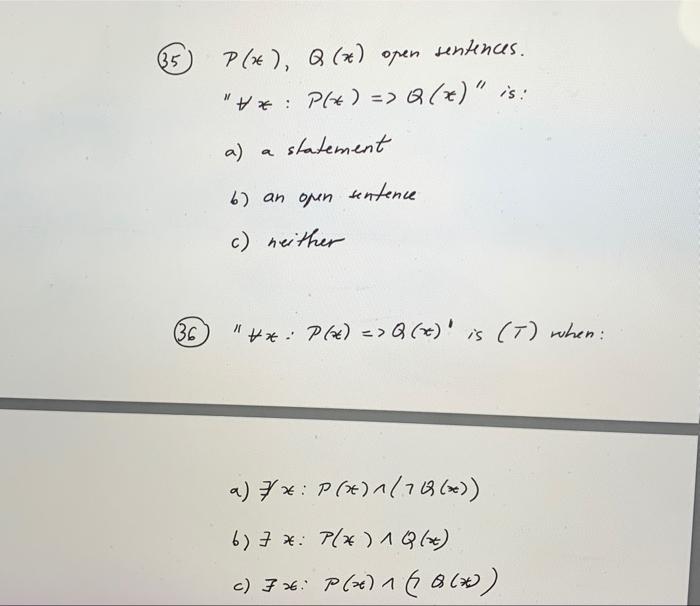 (35) P(x), Q(x) open sentences.
"∀x : P(x) => Q(x)" is:
a) a statement
b) an open sentence
c) neither
(36) "∀x : P(x) => Q(x)' is (T) when:
a) ∄x : P(x) ∧ (¬Q(x))
b) ∃x : P(x) ∧ Q(x)
c) ∃x : P(x) ∧ (¬Q(x))